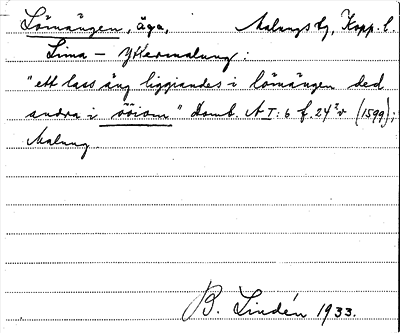 Lömängen, äga, Malungs tg, Kopp. l.
Lima – Yttermalung:
"ett lass äng liggiandes i lömängen ded
andra i ööiom" Domb. AI: 6 f. 24² v (1599);
Malung.
B. Lindén 1933.